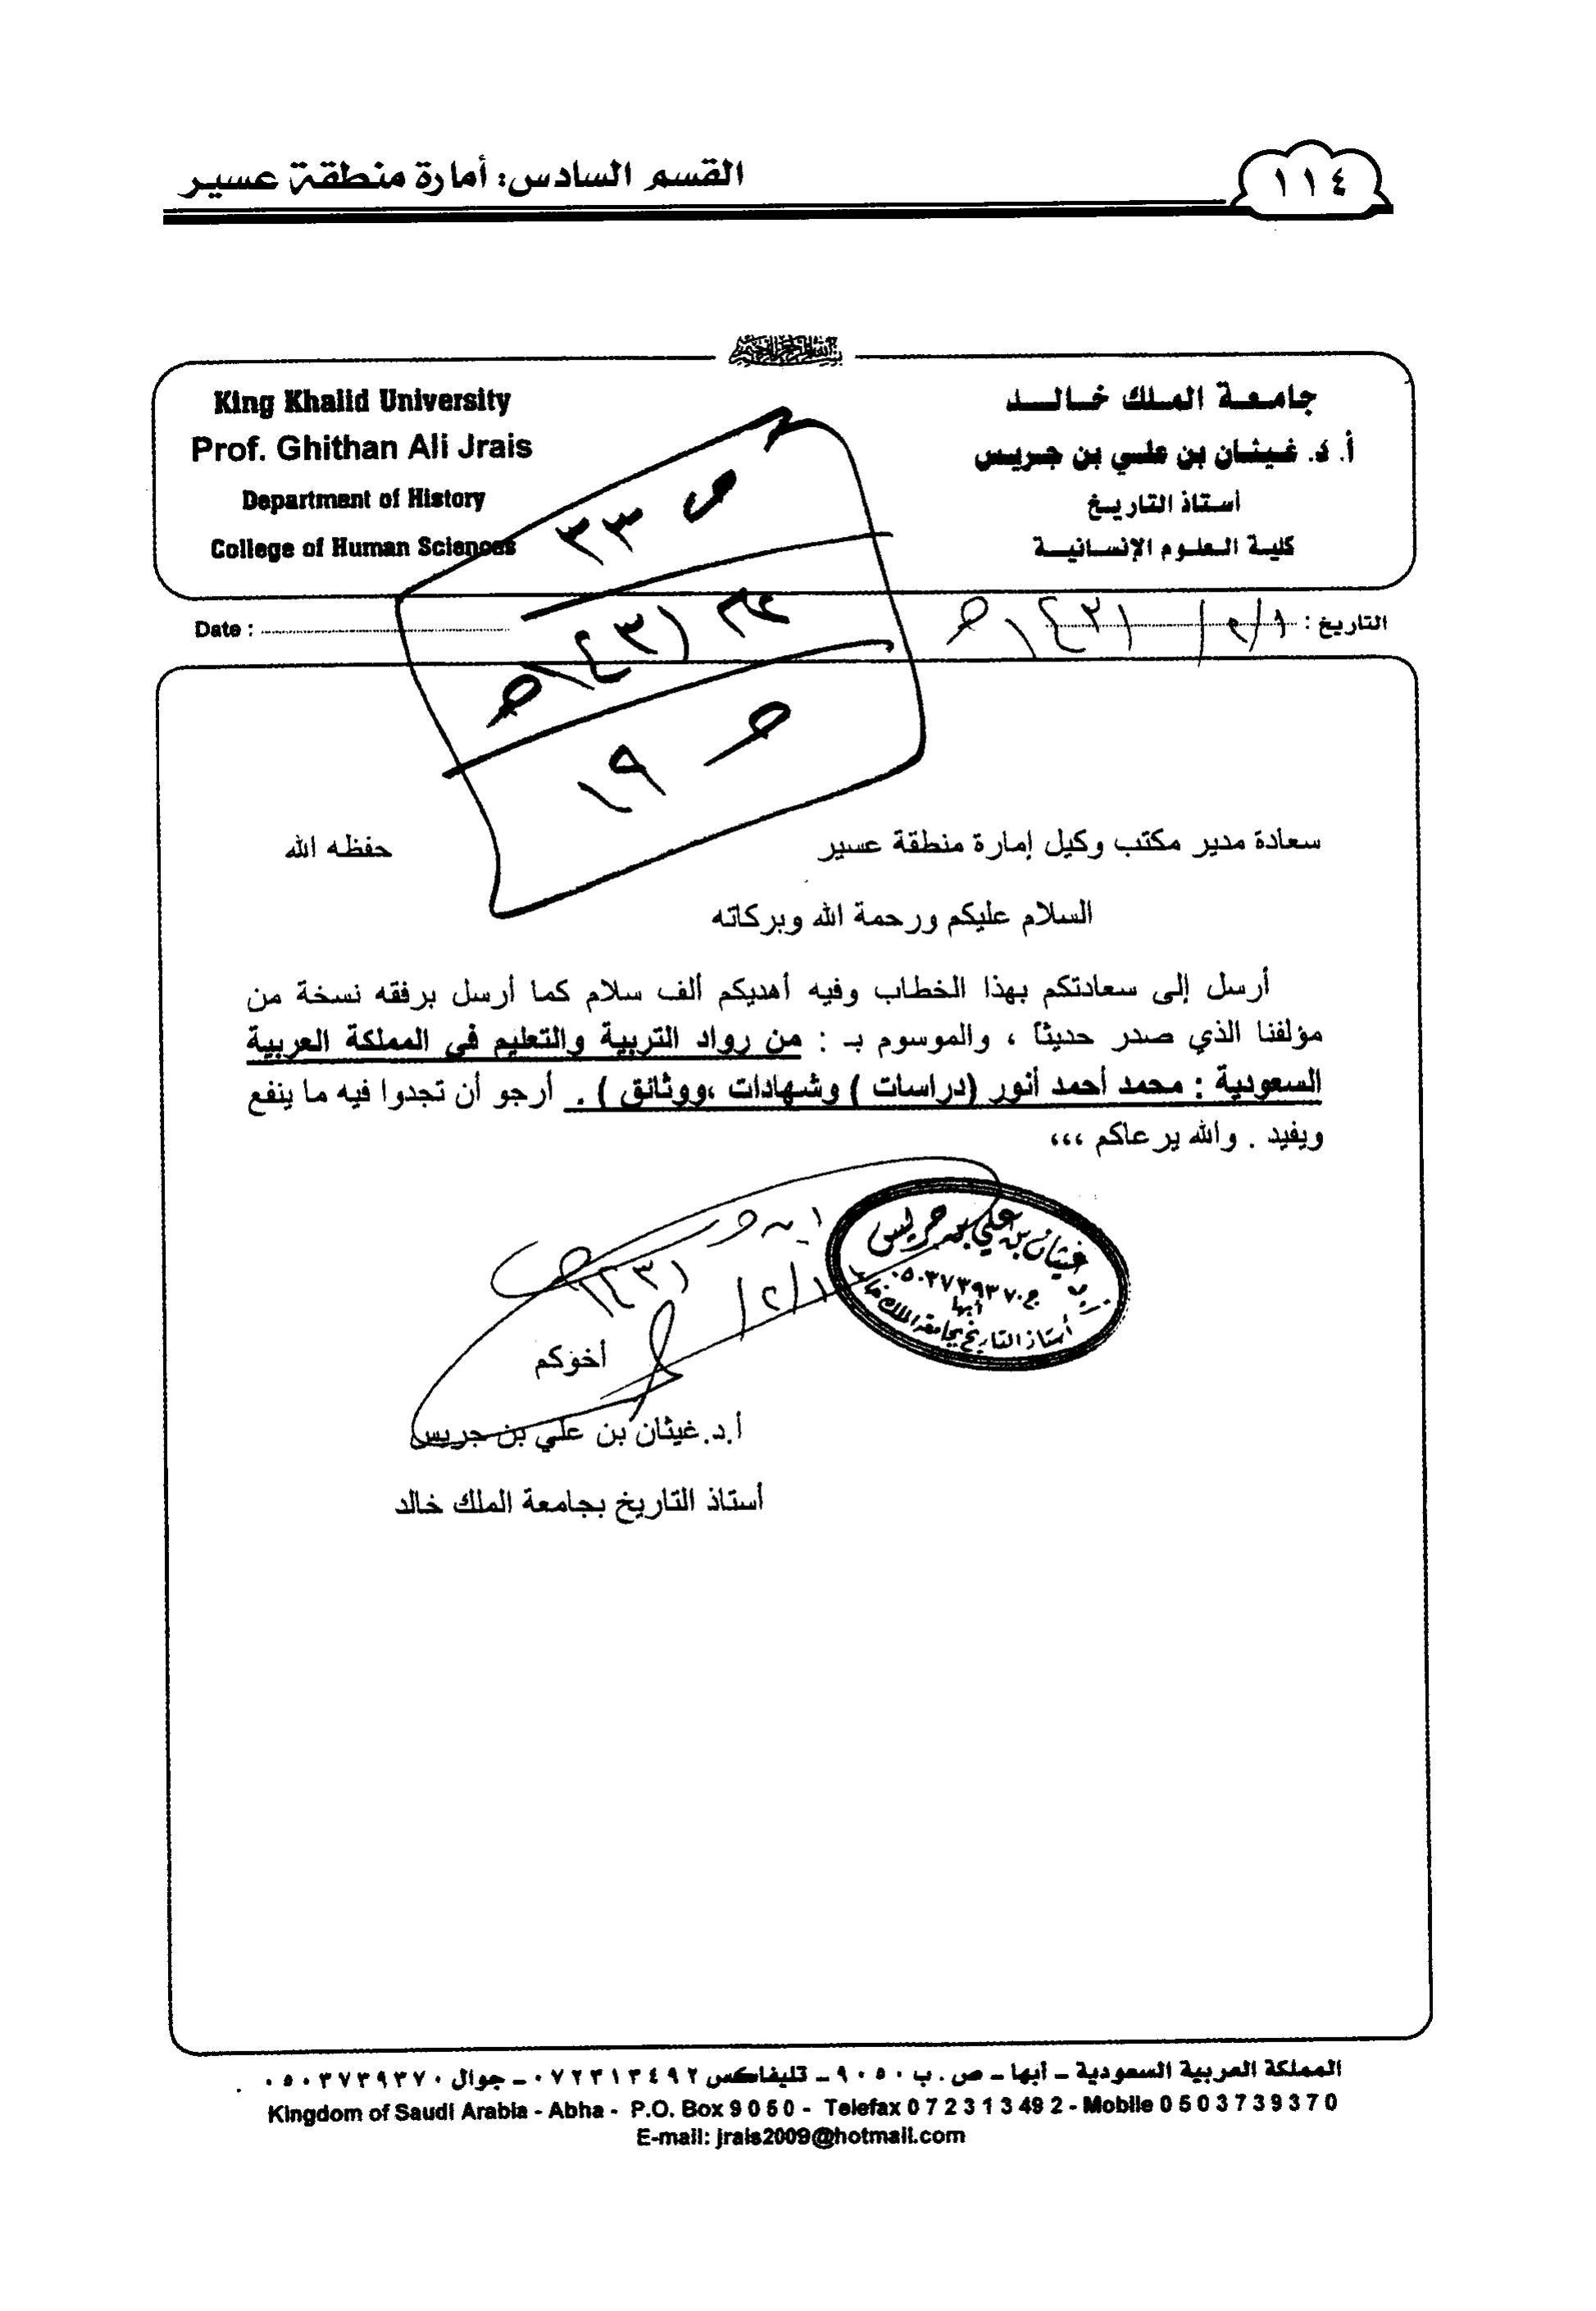 القسم السادس: أمارة منطقة عسير
١١٤
بسم الله الرحمن الرحيم
جامعة الملك خالد
أ. د. غيثان بن علي بن جريس
أستاذ التاريخ
كلية العلوم الإنسانية
King Khalid University
Prof. Ghithan Ali Jrais
Department of History
College of Human Sciences
ص ٣٣
عام ١٤٣١هـ
ص ١٩
التاريخ : ١/٢/١٤٣١هـ
Date :
سعادة مدير مكتب وكيل إمارة منطقة عسير حفظه الله
السلام عليكم ورحمة الله وبركاته
أرسل إلى سعادتكم بهذا الخطاب وفيه أهديكم ألف سلام كما أرسل برفقه نسخة من
مؤلفنا الذي صدر حديثاً ، والموسوم بـ : من رواد التربية والتعليم في المملكة العربية
السعودية : محمد أحمد أنور (دراسات ) وشهادات ،ووثائق ) . أرجو أن تجدوا فيه ما ينفع
ويفيد . والله يرعاكم ،،،
غيثان بن علي بن جريس
ج ٠٥٠٣٧٣٩٣٧٠
أبها
أستاذ التاريخ بجامعة الملك خالد
١/٢/١٤٣١هـ
أخوكم
أ.د.غيثان بن علي بن جريس
أستاذ التاريخ بجامعة الملك خالد
المملكة العربية السعودية – أبها – ص . ب ٩٠٥٠ – تليفاكس ٠٧٢٣١٣٤٩٢ – جوال ٠٥٠٣٧٣٩٣٧٠
Kingdom of Saudi Arabia - Abha - P.O. Box 9 0 5 0 - Telefax 0 7 2 3 1 3 49 2 - Mobile 0 5 0 3 7 3 9 3 7 0
E-mail: jrais2009@hotmail.com